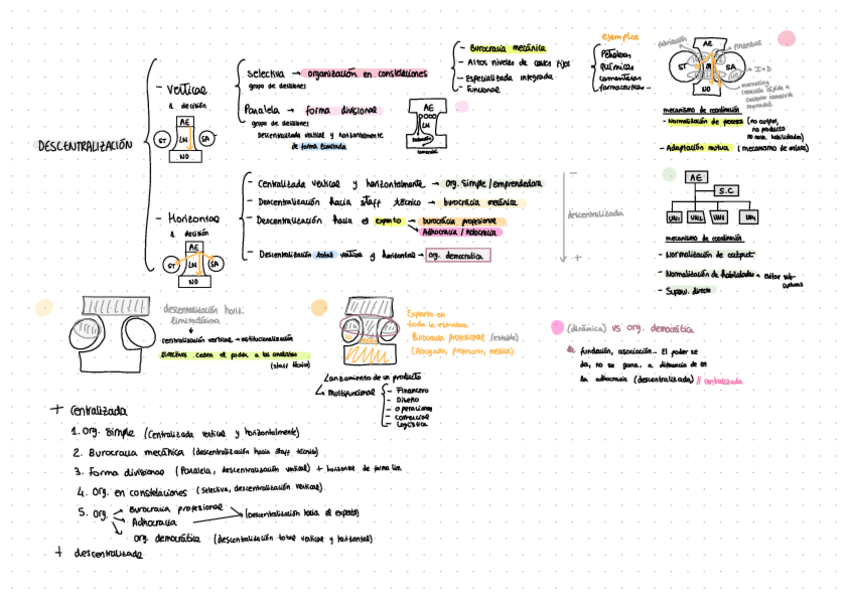 DESCENTRALIZACIÓN
- Vertical
1. decisión
AE
ST
LN
SA
NO
Selectiva → organización en constelaciones
grupo de decisiones
Paralela → forma divisional
grupo de decisiones
Descentralizada vertical y horizontalmente
de forma limitada
AE
LN
- Burocracia mecánica
- Altos niveles de costes fijos
- Especializada integrada
- Funcional
ejemplos
Petróleos,
Químicas
cementeras
farmacéuticas
fabricación
finanzas
I+D
marketing
AE
ST
SA
NO
mecanismo de coordinación
- Normalización de procesos (no output,
no producto
no habilidades)
- Adaptación mutua (mecanismo de enlace)
- Horizontal
1. decisión
AE
ST
LN
SA
NO
- Centralizada vertical y horizontalmente → org. Simple / emprendedora
- Descentralización hacia staff técnico → burocracia mecánica
- Descentralización hacia el experto → burocracia profesional
Adhocracia /
- Descentralización total vertical y horizontal → org. democrática
-
descentralizada
+
AE
S.C
UN1
UN2
UN3
UN4
mecanismo de coordinación
- Normalización de output
- Normalización de habilidades →
- Superv. directa
descentralización horiz.
limitadísima
centralización vertical → institucionalización
Directivos ceden el poder a los analistas
(staff técnico)
Experto en
toda la estructura
Burocracia profesional (estable)
(Abogado, profesores, médicos)
Lanzamiento de un producto
↳ Multifuncional
- Financiero
- Diseño
- Operaciones
- Comercial
- Logística
(dinámica) vs org. democrática
fundación, asociación... El poder se
da, no se gana, a diferencia de en
la adhocracia (descentralizada) // centralizada
+ centralizada
1. org. simple (Centralizada vertical y horizontalmente)
2. Burocracia mecánica (descentralización hacia staff técnico)
3. Forma divisional (Paralela, descentralización vertical) + horizontal de forma lim.
4. Org. en constelaciones (Selectiva, descentralización vertical)
5. Org.
Burocracia profesional
Adhocracia
(Descentralización hacia el experto)
org. democrática (descentralización total vertical y horizontal)
+ descentralizada